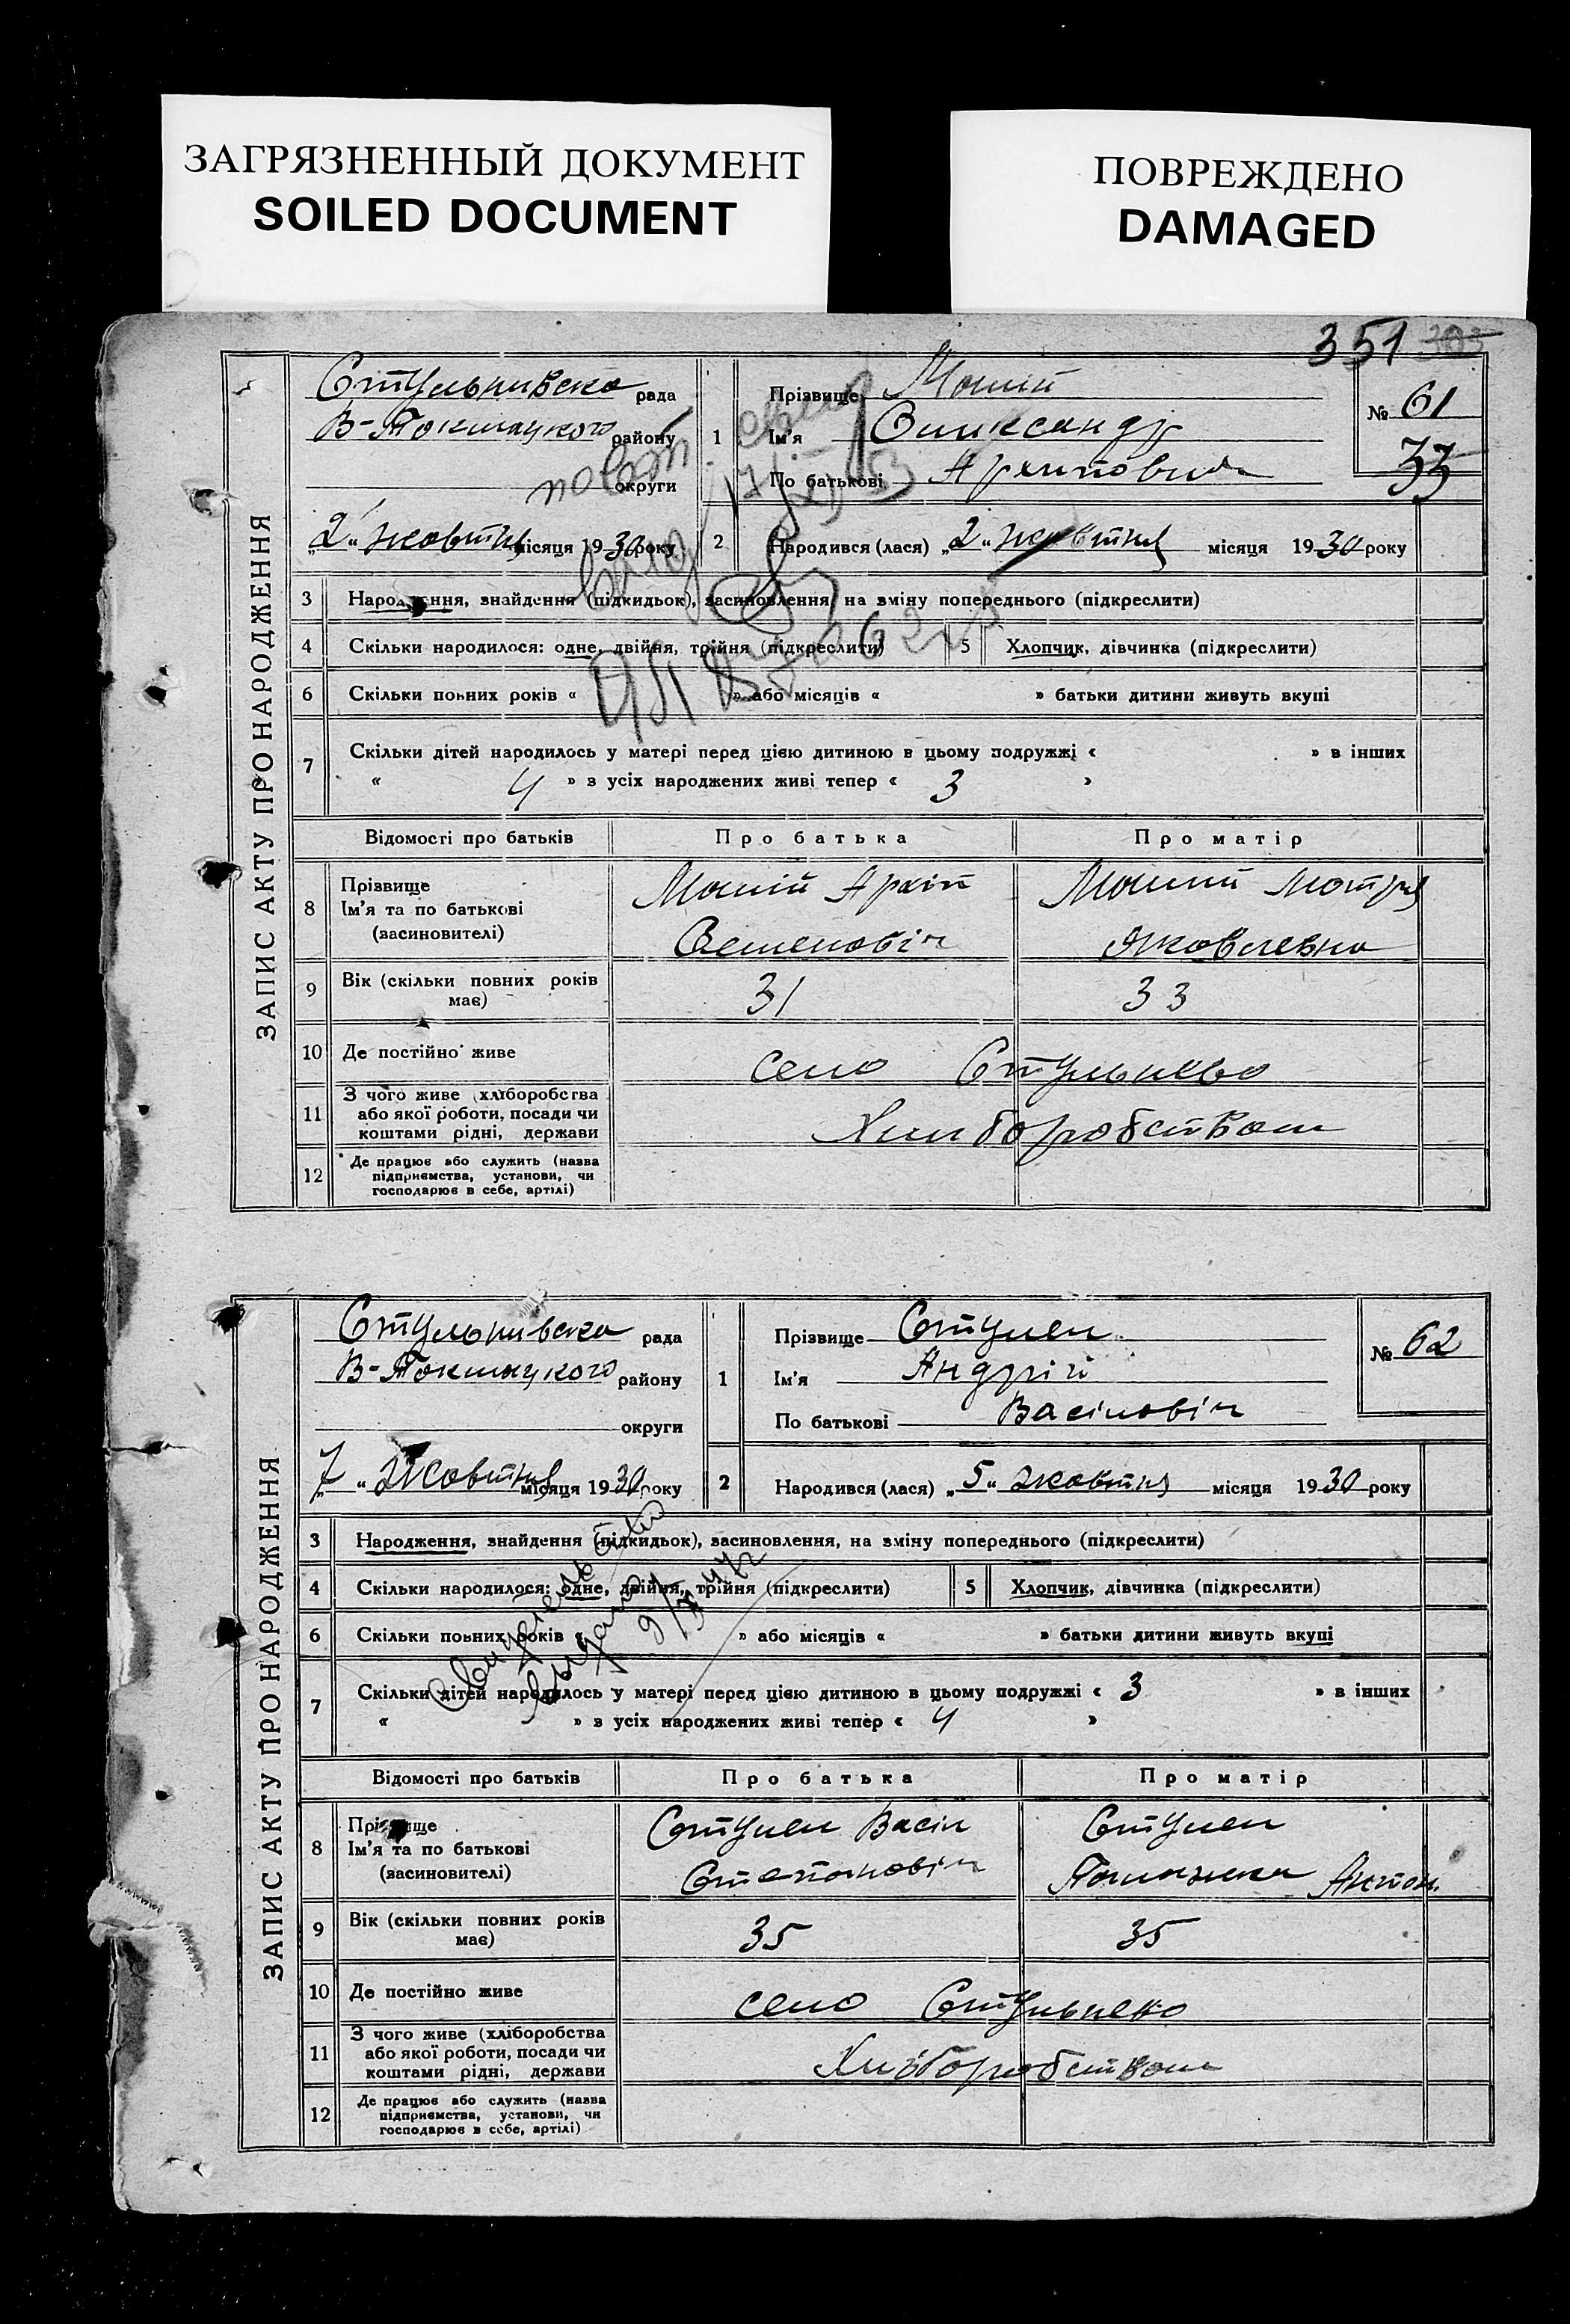 ЗАГРЯЗНЕННЫЙ ДОКУМЕНТ
SOILED DOCUMENT
ПОВРЕЖДЕНО
DAMAGED
351 303
ЗАПИС АКТУ ПРО НАРОДЖЕННЯ
Стульнивска рада
В-Токмацкого району
округи
"2" жовтня місяця 1930 року
1 Прізвище Моший
Ім'я Олександр
По батькові Архипович
№ 61
33
2 Народився (лася) "2" жовтня місяця 1930 року
3 Народження, знайдення (підкидьок), засиновлення, на зміну попереднього (підкреслити)
4 Скільки народилося: одне, двійня, трійня (підкреслити) 5 Хлопчик, дівчинка (підкреслити)
6 Скільки повних років « » або місяців « » батьки дитини живуть вкупі
7 Скільки дітей народилось у матері перед цією дитиною в цьому подружжі « » в інших
« 4 » з усіх народжених живі тепер « 3 »
Відомості про батьків Про батька Про матір
8 Прізвище
Ім'я та по батькові
(засиновителі)
Моший Архіп
Семеновіч
Моший Мотря
Яковлевна
9 Вік (скільки повних років
має) 31 33
10 Де постійно живе село Стульнево
11 З чого живе (хліборобства
або якої роботи, посади чи
коштами рідні, держави
Хлиборобством
12 Де працює або служить (назва
підприємства, установи, чи
господарює в себе, артілі)
ЗАПИС АКТУ ПРО НАРОДЖЕННЯ
Стульнивска рада
В-Токмацкого району
округи
"7" Жовтня місяця 1930 року
1 Прізвище Стулен
Ім'я Андрій
По батькові Васіловіч
№ 62
2 Народився (лася) "5" жовтня місяця 1930 року
3 Народження, знайдення (підкидьок), засиновлення, на зміну попереднього (підкреслити)
4 Скільки народилося: одне, двійня, трійня (підкреслити) 5 Хлопчик, дівчинка (підкреслити)
6 Скільки повних років « » або місяців « » батьки дитини живуть вкупі
7 Скільки дітей народилось у матері перед цією дитиною в цьому подружжі « 3 » в інших
« » з усіх народжених живі тепер « 4 »
Свидетельство
выдано
Відомості про батьків Про батька Про матір
8 Прізвище
Ім'я та по батькові
(засиновителі)
Стулен Васіл
Степановіч
Стулен
Антон.
9 Вік (скільки повних років
має) 35 35
10 Де постійно живе село Стульнево
11 З чого живе (хліборобства
або якої роботи, посади чи
коштами рідні, держави
Хліборобством
12 Де працює або служить (назва
підприємства, установи, чи
господарює в себе, артілі)